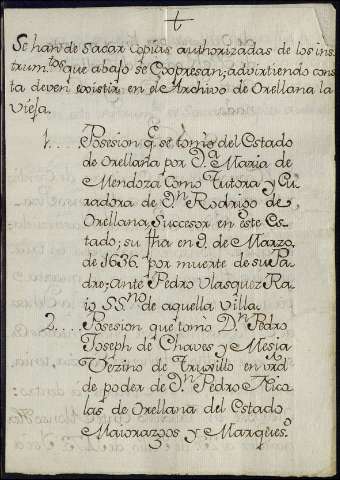 †
Se han de sacar copias authorizadas de los ins
trum.tos que abajo se Expresan; advirtiendo cons
ta deven existir en el Archivo de Orellana la
vieja.
1.... Posesion q.e se tomó del Estado
de Orellana por D.a Maria de
Mendoza Como Tutora y Cu
radora de D.n Rodrigo de
Orellana, Succesor en este Es
tado; su fha en 9. de Marzo
de 1636. por muerte de su Pa
dre; ante Pedro Vlasquez Ra
io SS.no de aquella villa.
2.... Posesion que tomo D.n Pedro
Joseph de Chaves y Mesia
Vezino de Truxillo en vrd
de poder de D.n Pedro Nico
las de Orellana del Estado
Maiorazgos y Marques.o